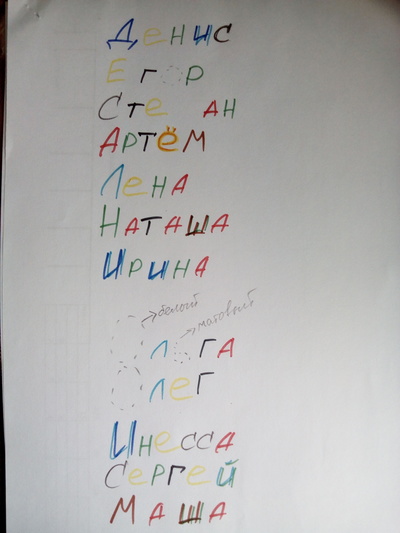 Денис
Егор
Сте ан
Артём
Лена
Наташа
Ирина
белый
матовый
Ольга
Олег
Инесса
Сергей
Маша